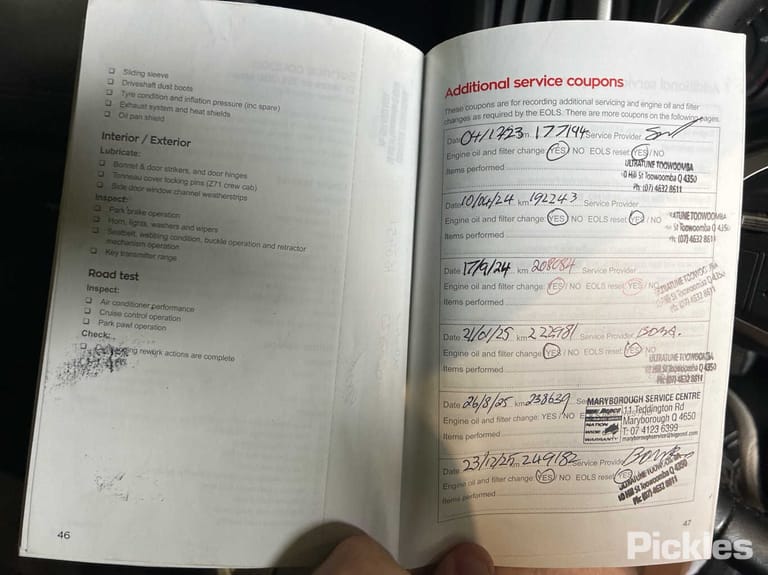 Sliding sleeve
Driveshaft dust boots
Tyre condition and inflation pressure (inc spare)
Exhaust system and heat shields
Oil pan shield
Interior / Exterior
Lubricate:
Bonnet & door strikers, and door hinges
Tonneau cover locking pins (Z71 crew cab)
Side door window channel weatherstrips
Inspect:
Park brake operation
Horn, lights, washers and wipers
Seatbelt, webbing condition, buckle operation and retractor
mechanism operation
Key transmitter range
Road test
Inspect:
Air conditioner performance
Cruise control operation
Park pawl operation
Check:
rework actions are complete
46
Additional service coupons
These coupons are for recording additional servicing and engine oil and filter
changes as required by the EOLS. There are more coupons on the following pages.
Date km 177194 Service Provider
Engine oil and filter change: YES / NO EOLS reset: YES / NO
Items performed
ULTRATUNE TOOWOOMBA
10 Hill St Toowoomba Q 4350
Ph: (07) 4632 8611
Date 10/04/24 km 192243 Service Provider
Engine oil and filter change: YES / NO EOLS reset: YES / NO
Items performed
RATUNE TOOWOOMBA
St Toowoomba Q 4350
(07) 4632 8611
Date 17/9/24 km 208084 Service Provider
Engine oil and filter change: YES / NO EOLS reset: YES / NO
Items performed
ULTRATUNE TOOWOOMBA
Hill St Toowoomba Q 4350
Ph: (07) 4632 8611
Date 21/01/25 km 229781 Service Provider
Engine oil and filter change: YES / NO EOLS reset: YES / NO
Items performed
ULTRATUNE TOOWOOMBA
10 Hill St Toowoomba Q 4350
Ph: (07) 4632 8611
Date 26/8/25 km 238639
Engine oil and filter change: YES / NO
Items performed
MARYBOROUGH SERVICE CENTRE
Repco
NATION
WIDE
WARRANTY
111 Teddington Rd
Maryborough Q 4650
T: 07 4123 6399
maryboroughservice@bigpond.com
Date 23/12/25 km 249182 Service Provider
Engine oil and filter change: YES / NO EOLS reset: YES
Items performed
ULTRATUNE TOOWOOMBA
10 Hill St Toowoomba Q 4350
Ph: (07) 4632 8611
47
Pickles